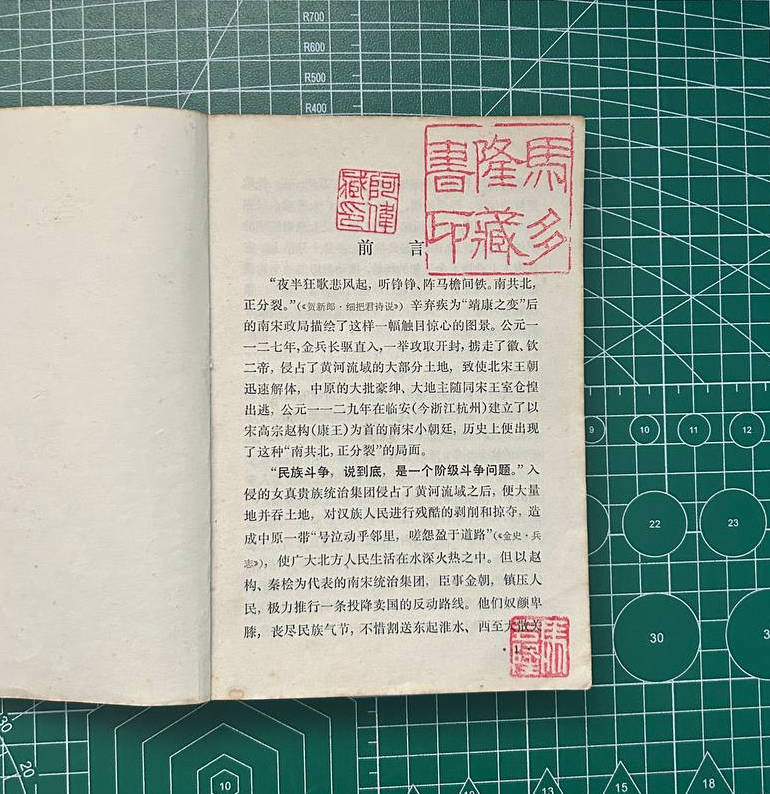 R700
R600
R500
R400
馬多
隆藏
書印
阿偉
藏印
前言
“夜半狂歌悲风起，听铮铮、阵马檐间铁。南共北，
正分裂。”(《贺新郎·细把君诗说》) 辛弃疾为“靖康之变”后
的南宋政局描绘了这样一幅触目惊心的图景。公元一
一二七年，金兵长驱直入，一举攻取开封，掳走了徽、钦
二帝，侵占了黄河流域的大部分土地，致使北宋王朝
迅速解体，中原的大批豪绅、大地主随同宋王室仓惶
出逃，公元一一二九年在临安(今浙江杭州)建立了以
宋高宗赵构(康王)为首的南宋小朝廷，历史上便出现
了这种“南共北，正分裂”的局面。
“民族斗争，说到底，是一个阶级斗争问题。”入
侵的女真贵族统治集团侵占了黄河流域之后，便大量
地并吞土地，对汉族人民进行残酷的剥削和掠夺，造
成中原一带“号泣动乎邻里，嗟怨盈于道路”(《金史·兵
志》)，使广大北方人民生活在水深火热之中。但以赵
构、秦桧为代表的南宋统治集团，臣事金朝，镇压人
民，极力推行一条投降卖国的反动路线。他们奴颜卑
膝，丧尽民族气节，不惜割送东起淮水、西至大散关
· 1 ·
9
10
11
12
22
23
30
3
30
20
10
12
13
15
18